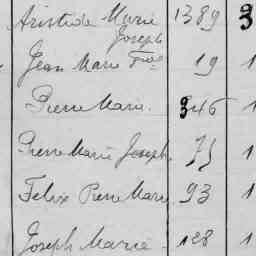 Aristide Marie 1389 3
Joseph
Jean Marie Fçois 19 1
Pierre Marie. 346 1
Pierre Marie Joseph 75 1
Felix Pierre Marie 93 1
Joseph Marie 128 1